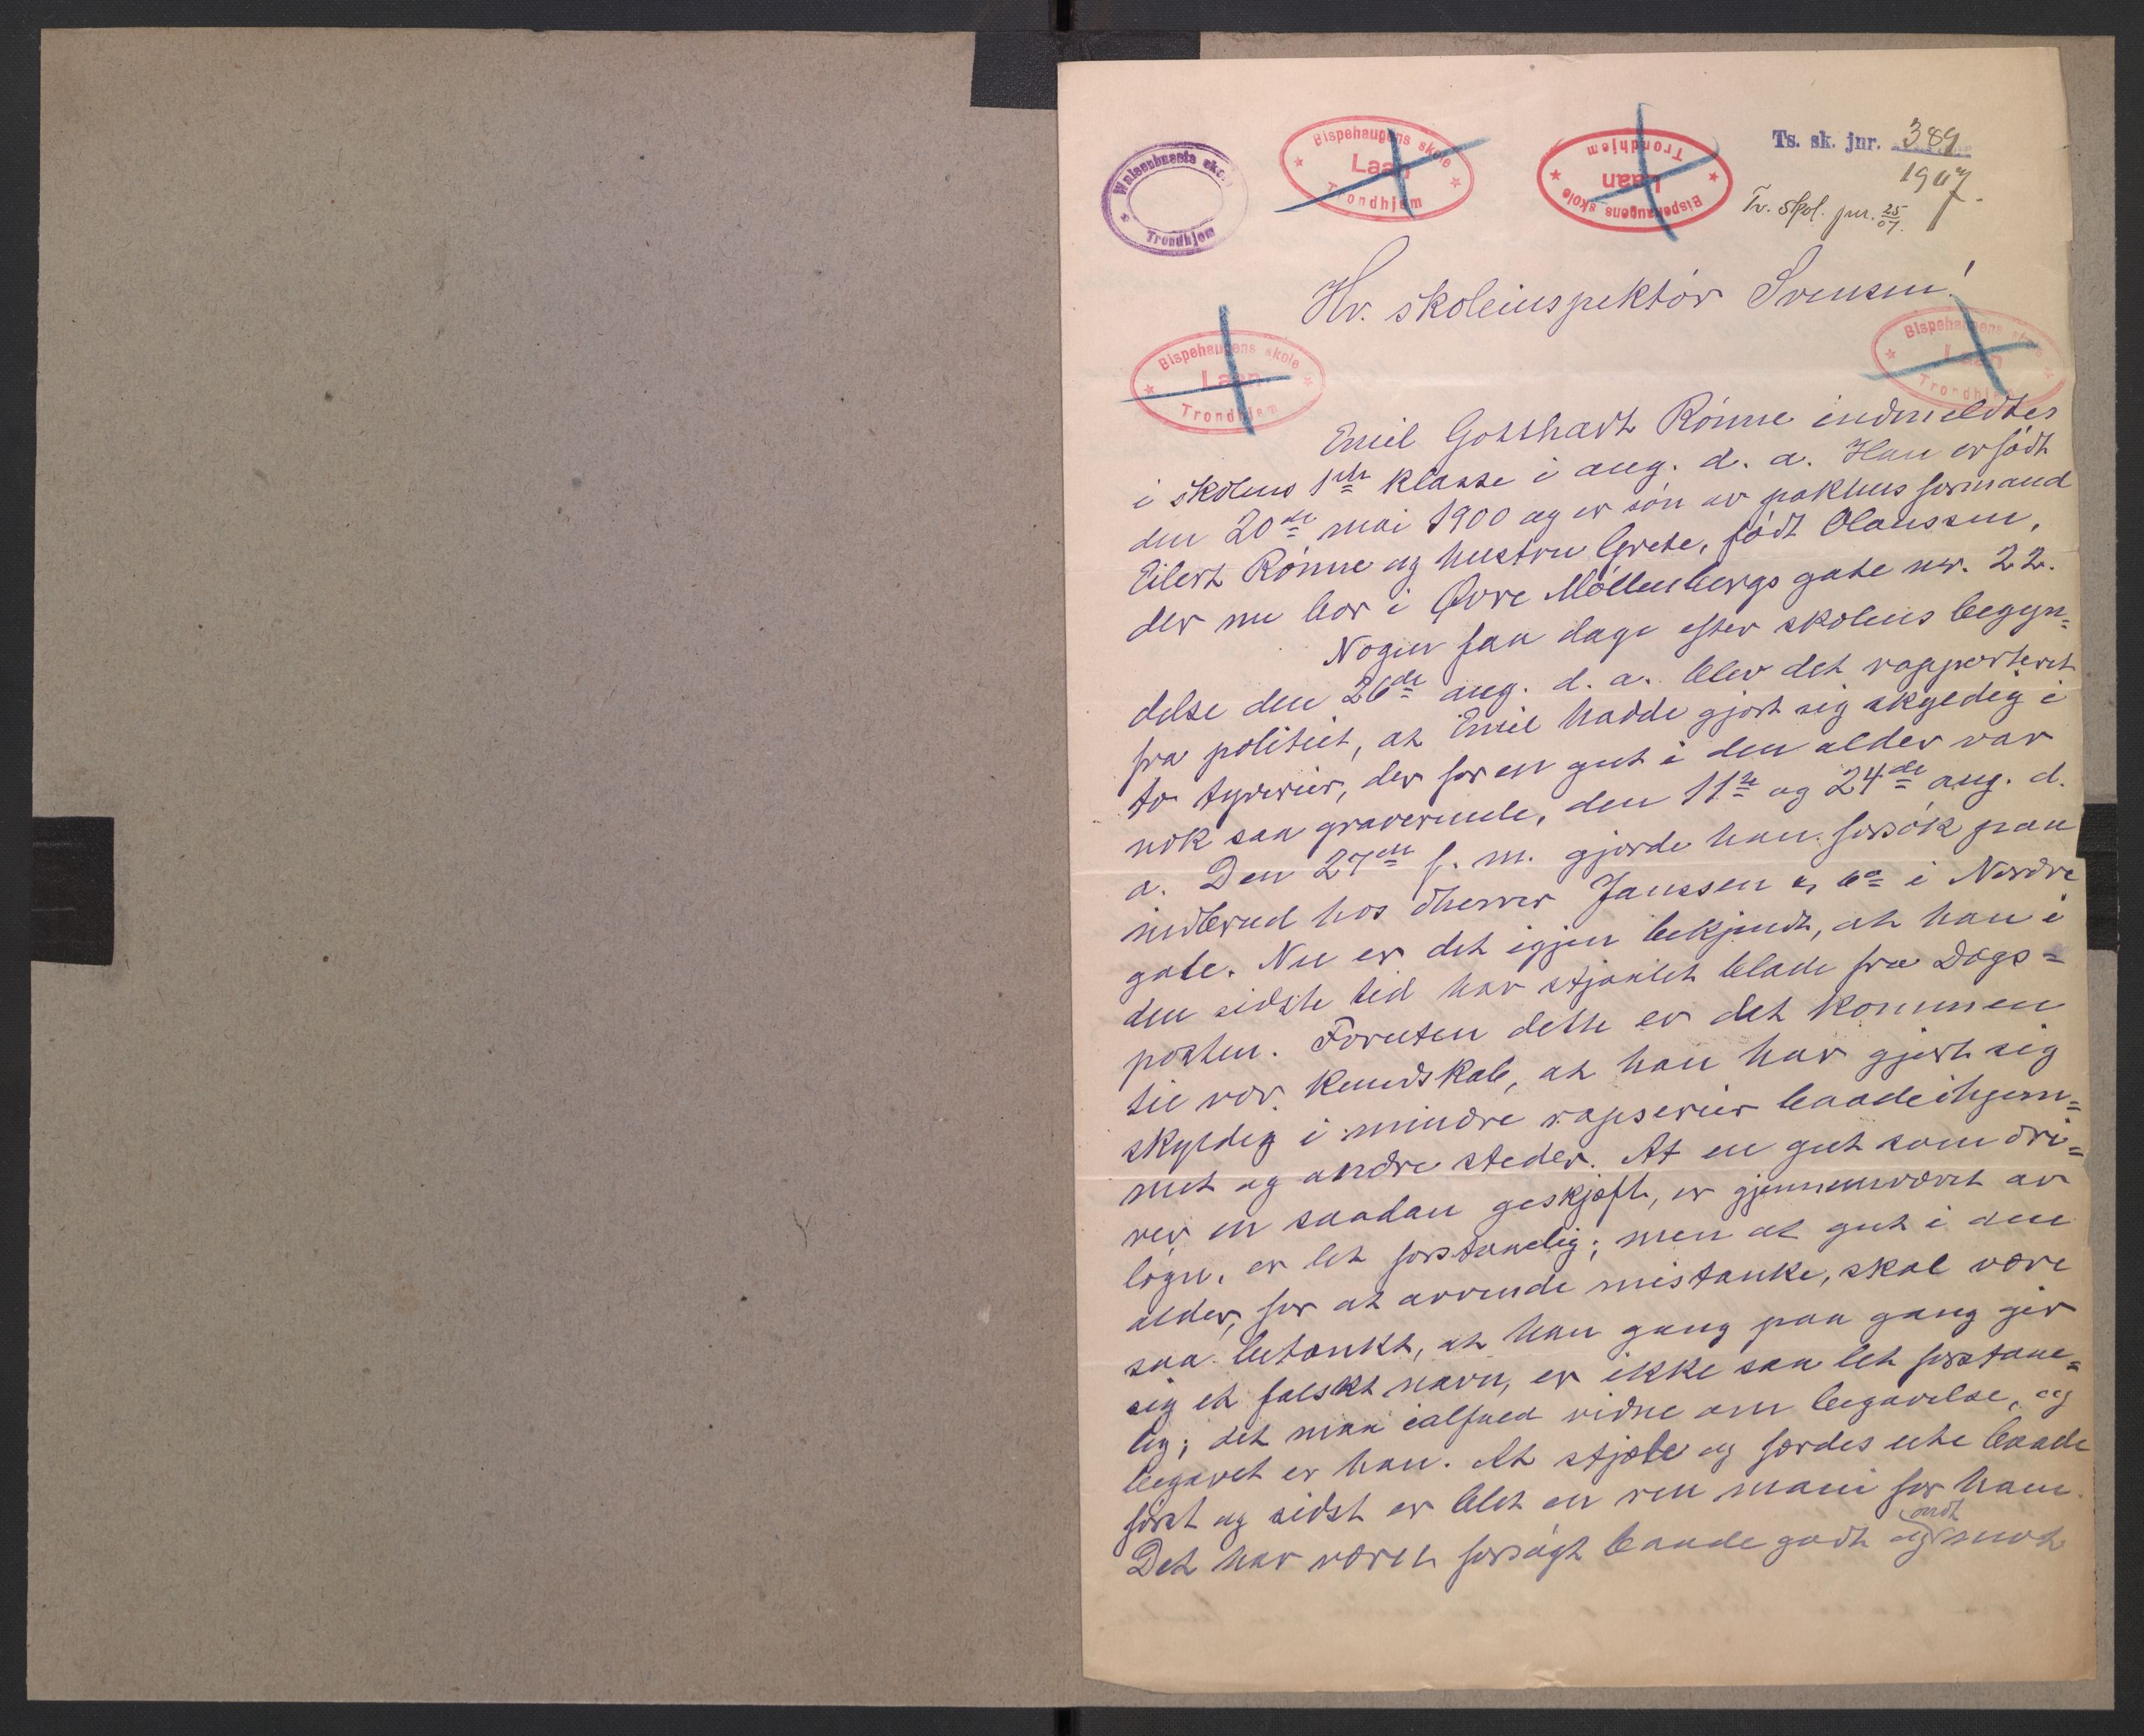 Waisenhusets skole
Trondhjem
Bispehaugens skole
Laan
Trondhjem
Bispehaugens skole
Laan
Trondhjem
Ts. sk. jnr. 389
1907.
Tr. Skol. jnr. 25/07.
Hr. skoleinspektör Svensen!
Bispehaugens skole
Laan
Trondhjem
Bispehaugens skole
Laan
Trondhjem
Emil Gotthardt Rönne indmeldtes
i skolens 1ste klasse i aug. d. a. Han er födt
den 20de mai 1900 og er sön av pakhusformand
Eilert Rönne og hustru Grete, födt Olaussen,
der nu bor i Övre Möllenbergs gate nr. 22.
Nogen faa dage efter skolens begyn=
delse den 26de aug. d. a. blev det rapporteret
fra politiet, at Emil hadde gjort sig skyldig i
to tyverier, der for en gut i den alder var
nok saa graverende, den 11te og 24de aug. d.
a. Den 27de s. m. gjorde han forsök paa
indbrud hos dherrer Janssen & Co i Nordre
gate. Nu er det igjen bekjendt, at han i
den sidste tid har stjaalet blade fra Dags=
posten. Foruten dette er det kommen
til vor kundskab, at han har gjort sig
skyldig i mindre rapserier baade i hjem=
met og andre steder. At en gut som dri=
ver en saadan geskjæft, er gjennemvævet av
lögn, er let forstaaelig; men at gut i den
alder, for at avvende mistanke, skal være
saa betænkt, at han gang paa gang gir
sig et falskt navn, er ikke saa let forstaae=
lig; det maa ialfald vidne om begavelse, og
begavet er han. At stjæle og færdes ute baade
först og sidst er blet en ren mani for ham.
Det har været forsögt baade godt og ondt mot